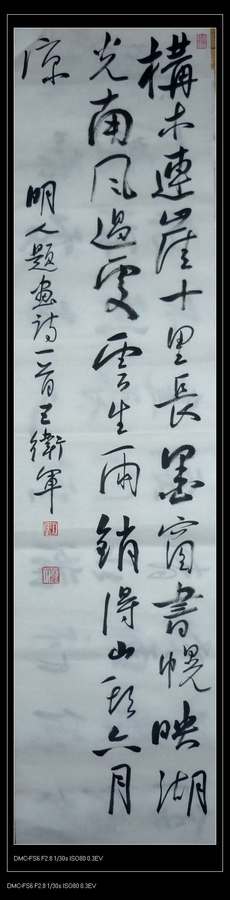 構木連崖十里長墨窗書幌映湖
光南風過處雲生雨銷得山六月
凉
明人題畫詩一首王衛軍
DMC-FS6 F2.8 1/30s ISO80 0.3EV
DMC-FS6 F2.8 1/30s ISO80 0.3EV